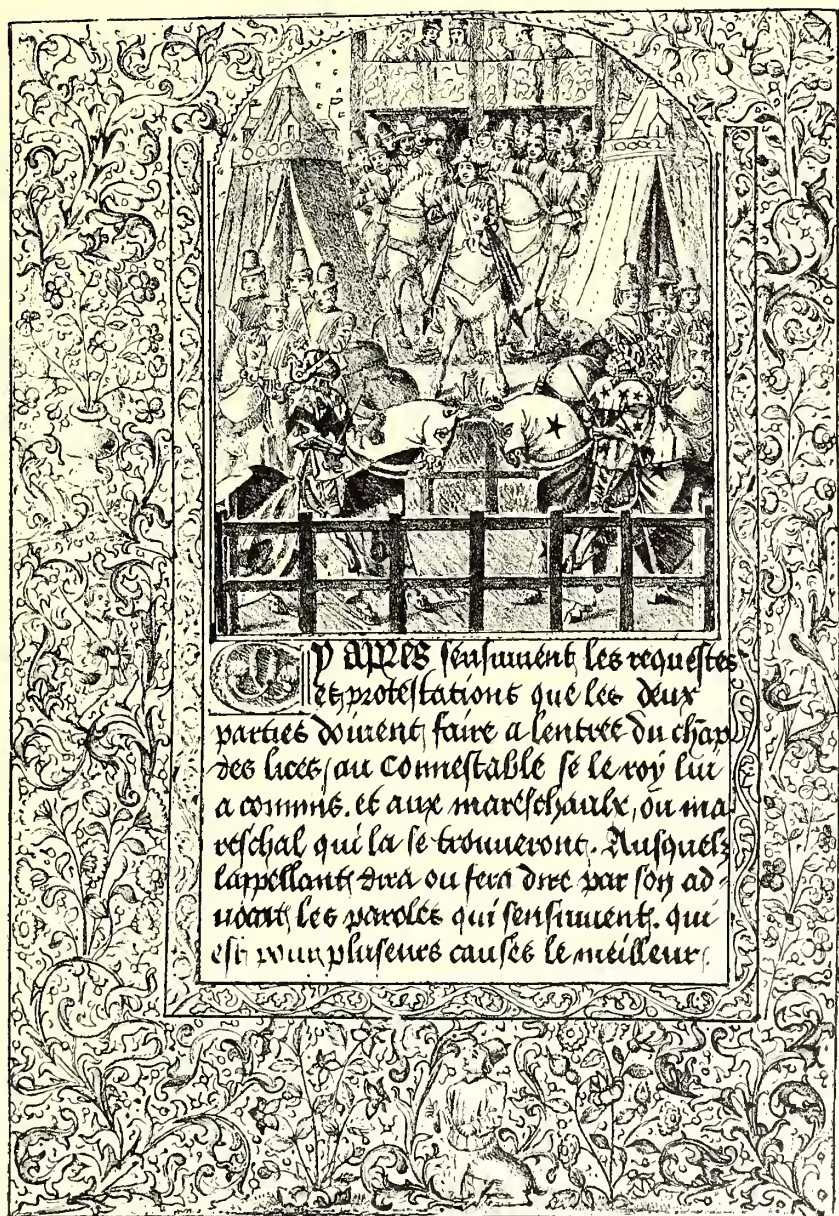 Cy apres sensuivent les requestes
et protestations que les deux
parties doivent faire a lentree du chāp
des lices, au connestable se le roy lui
a commis. et aux mareschaulx, ou ma
reschal qui la se trouveront. Ausquelz
lappellant dira ou fera dire par son ad-
vocat les paroles qui sensuivent. qui
est pour pluseurs causes le meilleur.